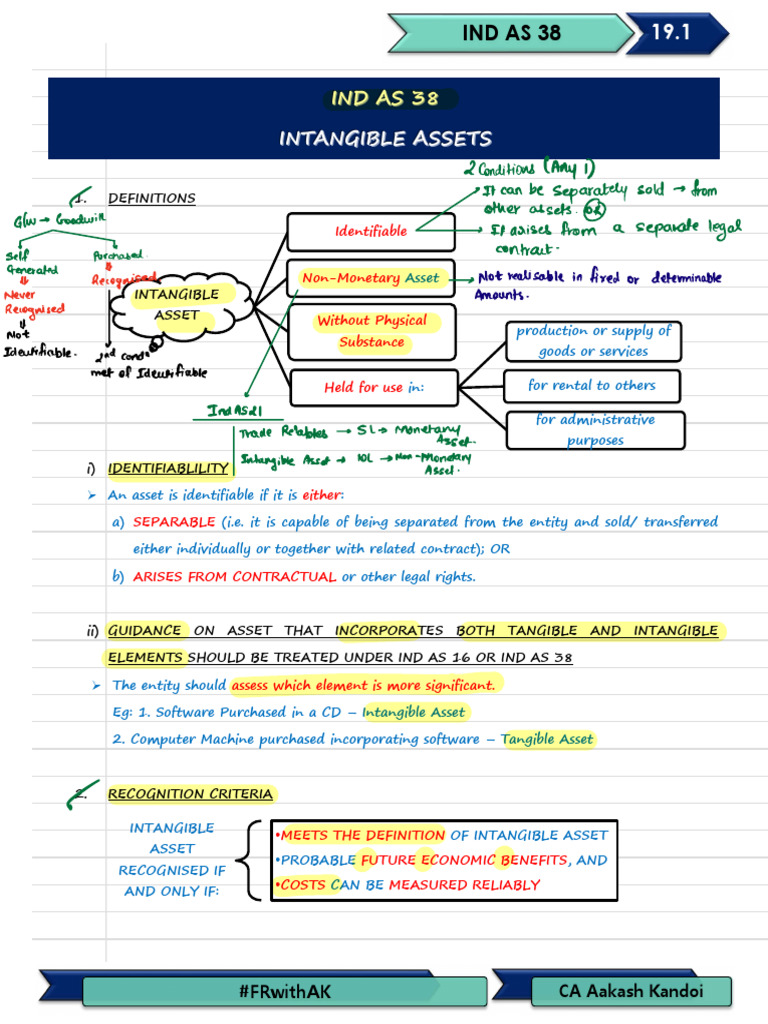 IND AS 38
19.1
IND AS 38
INTANGIBLE ASSETS
2 Conditions (Any 1)
1. DEFINITIONS
→ It can be separately sold → from
other assets. OR
→ It arises from a separate legal
contract.
G/w → Goodwill
Self
Generated
⇓
Never
Recognised
⇓
Not
Identifiable.
Purchased
⇓
Recognised
2nd condn
met of Identifiable
INTANGIBLE
ASSET
Identifiable
Non-Monetary Asset
→ Not realisable in fixed or determinable
Amounts.
Without Physical
Substance
Held for use in:
production or supply of
goods or services
for rental to others
for administrative
purposes
Ind AS 21
Trade Relables → 5L → Monetary
Asset.
Intangible Asset → 10L → Non-Monetary
Asset.
i) IDENTIFIABLILITY
➢ An asset is identifiable if it is either:
a) SEPARABLE (i.e. it is capable of being separated from the entity and sold/ transferred
either individually or together with related contract); OR
b) ARISES FROM CONTRACTUAL or other legal rights.
ii) GUIDANCE ON ASSET THAT INCORPORATES BOTH TANGIBLE AND INTANGIBLE
ELEMENTS SHOULD BE TREATED UNDER IND AS 16 OR IND AS 38
➢ The entity should assess which element is more significant.
Eg: 1. Software Purchased in a CD – Intangible Asset
2. Computer Machine purchased incorporating software – Tangible Asset
2. RECOGNITION CRITERIA
INTANGIBLE
ASSET
RECOGNISED IF
AND ONLY IF:
•MEETS THE DEFINITION OF INTANGIBLE ASSET
•PROBABLE FUTURE ECONOMIC BENEFITS, AND
•COSTS CAN BE MEASURED RELIABLY
#FRwithAK
CA Aakash Kandoi